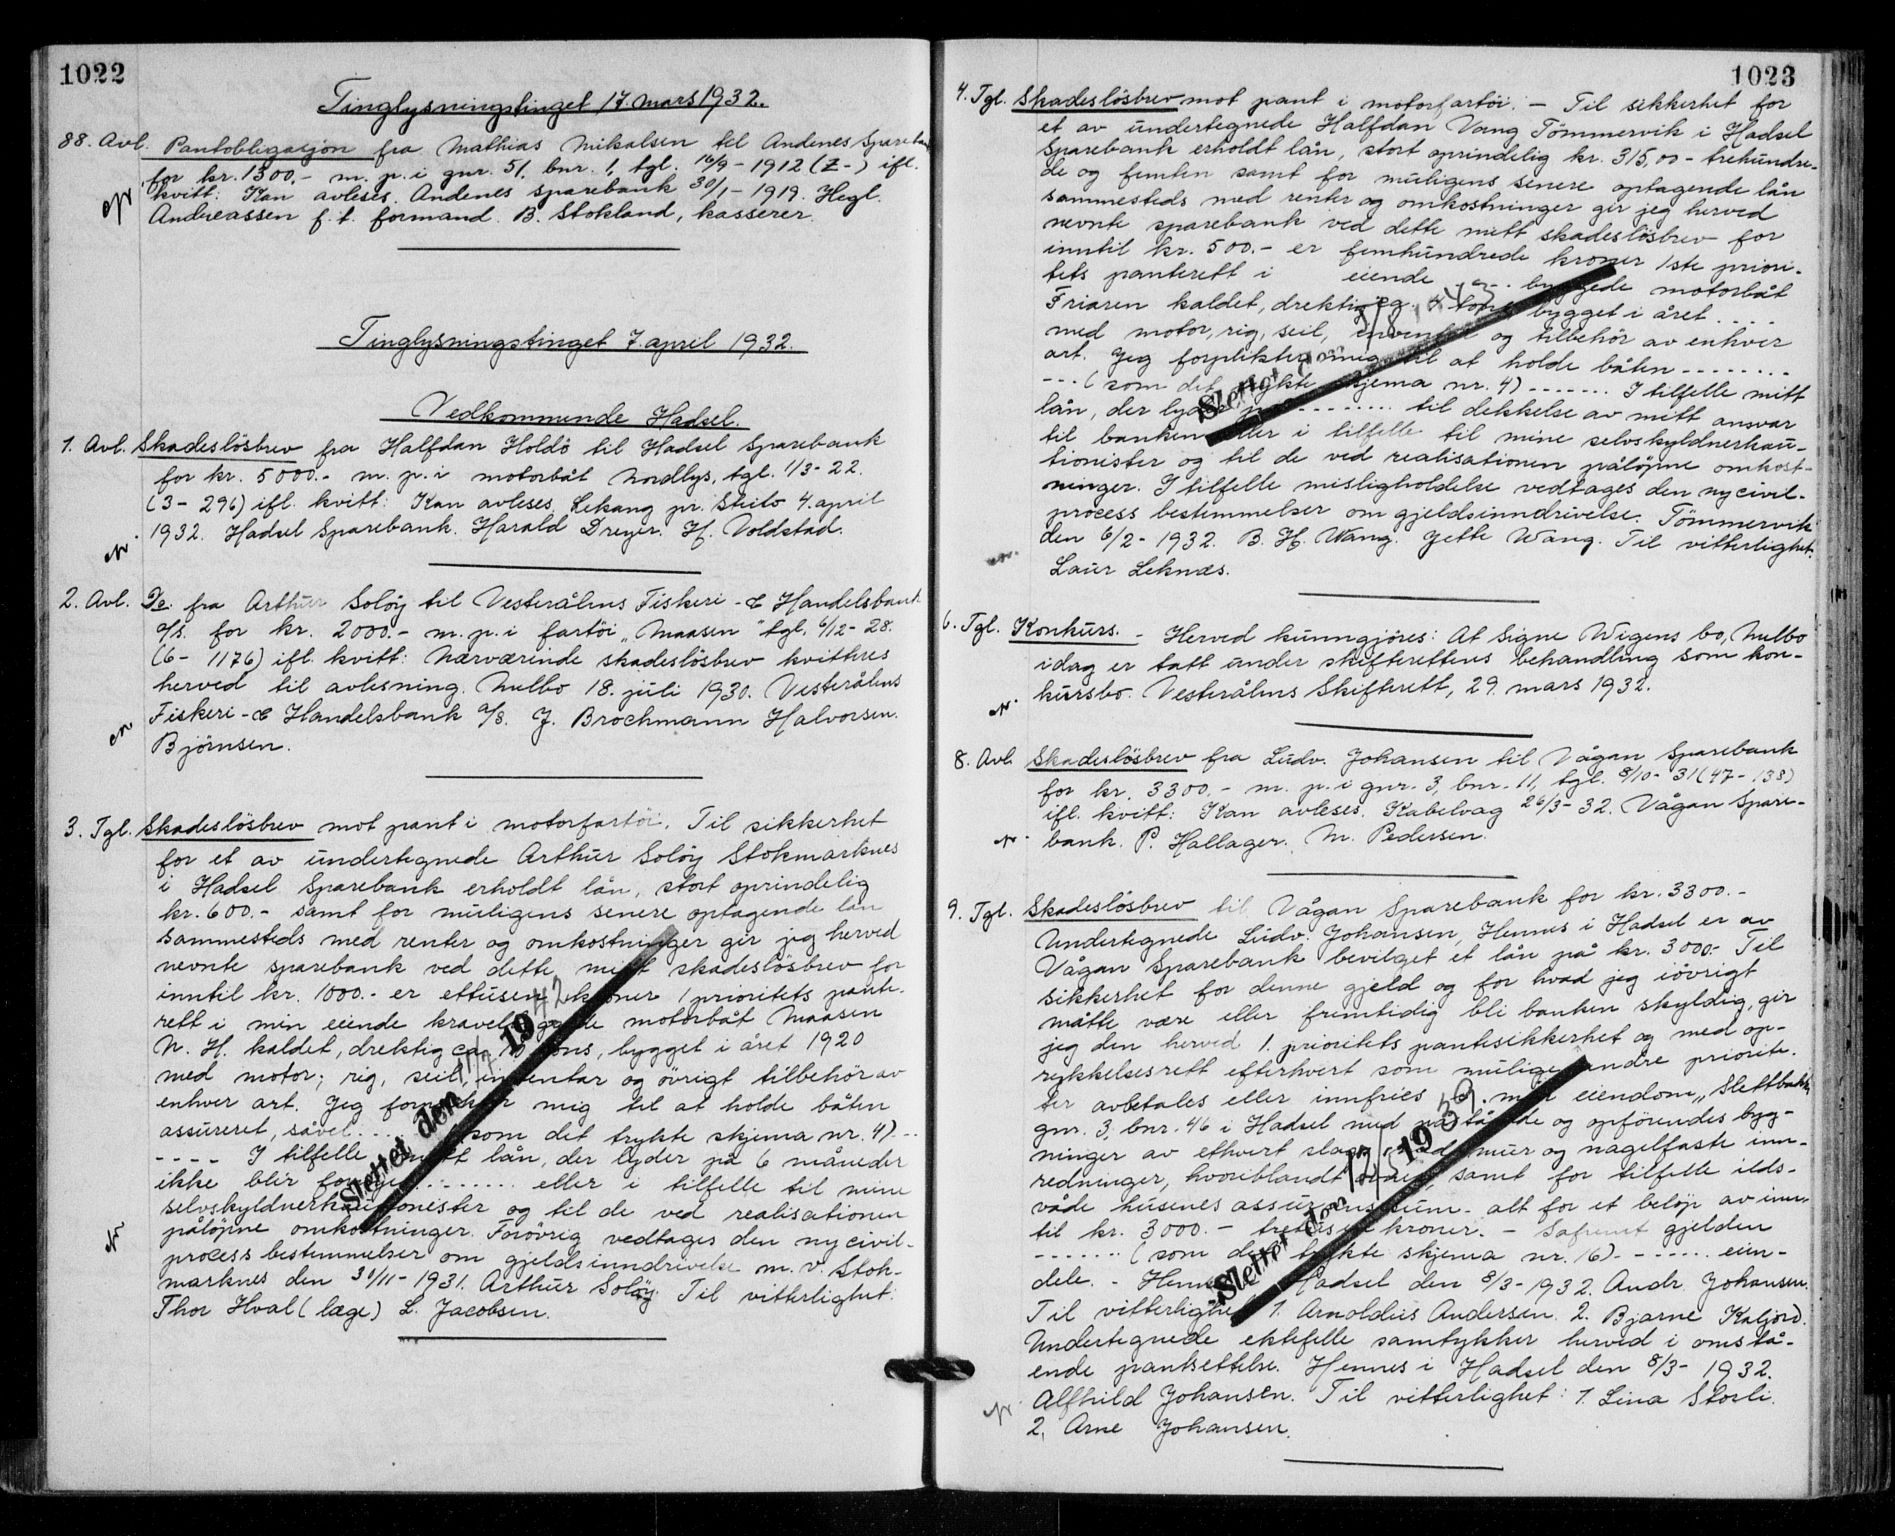 1022
Tinglysningstinget 17. mars 1932.
88. Avl. Pantobligasjon fra Mathias Mikalsen til Andenes Spareban
for kr. 1300.- m. p. i gnr. 51, bnr. 1, tgl. 16/9 - 1912 (Z-) ifl.
kvitt: Kan avleses. Andenes sparebank 30/1 - 1919. Hegl.
Andreassen f. t. formand. B. Stokland, kasserer.
Tinglysningstinget 7. april 1932.
Vedkommende Hadsel.
1. Avl. Skadeslösbrev fra Halfdan Holdö til Hadsel Sparebank
for kr. 5000.- m. p. i motorbåt Nordlys, tgl. 1/3 - 22.
(3 - 296) ifl. kvitt: Kan avleses. Lekang pr. Steilo 4. april
1932. Hadsel Sparebank. Harald Dreyer. H. Voldstad.
2. Avl. Do. fra Arthur Solöy til Vesterålens Fiskeri - & Handelsbank
a/s. for kr. 2000.- m. p. i fartöi "Maasen" tgl. 6/12 - 28.
(6 - 1176) ifl. kvitt: Nærværinde skadeslösbrev kvitteres
herved til avlesning. Melbo 18. juli 1930. Vesterålens
Fiskeri - & Handelsbank a/s. J. Brochmann Halvorsen.
Björnsen.
3. Tgl. Skadeslösbrev mot pant i motorfartöi. Til sikkerhet
for et av undertegnede Arthur Solöy Stokmarknes
i Hadsel Sparebank erholdt lån, stort oprindelig
kr. 600.- samt for muligens senere optagende lån
sammesteds med renter og omkostninger gir jeg herved
nevnte sparebank ved dette mitt skadeslösbrev for
inntil kr. 1000.- er ettusen kroner 1 prioritets pante-
rett i min eiende kravelbyggede motorbåt Maasen
N. H. kaldet, drektig ca. 10 tons, bygget i året 1920
med motor, rig, seil, inventar og övrigt tilbehör av
enhver art. Jeg forplikter mig til at holde båten
assureret, såvel .... (som det trykte skjema nr. 4) ...
---- I tilfelle mitt lån, der lyder på 6 måneder
ikke blir fornyet ........ eller i tilfelle til mine
selvskyldnerkautionister og til de ved realisationen
pålöpne omkostninger. Forövrig vedtages den ny civil-
process bestemmelser om gjeldsinndrivelse m. v. Stok-
marknes den 31/11 - 1931. Arthur Solöy. Til vitterlighet:
Thor Hval (læge) L. Jacobsen.
Slettet den 11/7 1942
1023
4. Tgl. Skadeslösbrev mot pant i motorfartöi. - Til sikkerhet for
et av undertegnede Halfdan Vang Tömmervik i Hadsel
Sparebank erholdt lån, stort oprindelig kr. 315,00 - trehundre-
de og femten samt for muligens senere optagende lån
sammesteds med renter og omkostninger gir jeg herved
nevnte sparebank ved dette mitt skadeslösbrev for
inntil kr. 500.- er femhundrede kroner 1ste priori-
tets panterett i eiende .... byggede motorbåt
Friaren kaldet, drektig ca. 4 tons bygget i året ....
med motor, rig, seil, inventar og tilbehör av enhver
art. Jeg forplikter mig til at holde båten --------
--- (som det trykte skjema nr. 4) ------- I tilfelle mitt
lån, der lyder på ---------- til dekkelse av mitt ansvar
til banken eller i tilfelle til mine selvskyldnerkau-
tionister og til de ved realisationen pålöpne omkost-
ninger. I tilfelle misligholdelse vedtages den ny civil-
process bestemmelser om gjeldsinndrivelse. Tömmervik
den 6/2 - 1932. B. H. Wang. Jette Wang. Til vitterlighet:
Laur Leknæs.
Slettet den
6. Tgl. Konkurs. - Herved kunngjöres: At Signe Wigens bo, Melbo
idag er tatt under skifterettens behandling som kon-
kursbo. Vesterålens Skifterett, 29. mars 1932.
8. Avl. Skadeslösbrev fra Ludv. Johansen til Vågan Sparebank
for kr. 3300.- m. p. i gnr. 3, bnr. 11, tgl. 8/10 - 31 (47 - 138)
ifl. kvitt: Kan avleses. Kabelvag 26/3 - 32. Vågan Spare-
bank. P. Hallager. M. Pedersen.
9. Tgl. Skadeslösbrev til Vågan Sparebank for kr. 3300.-
Undertegnede Ludv. Johansen, Hennes i Hadsel er av
Vågan Sparebank bevilget et lån på kr. 3000.- Til
sikkerhet for denne gjeld og for hvad jeg iövrigt
måtte være eller fremtidig bli banken skyldig, gir
jeg den herved 1. prioritets pantesikkerhet og med op-
rykkelsesrett efterhvert som mulige andre priorite-
ter avbetales eller innfries i min eiendom "Slettbakk
gnr. 3, bnr. 46 i Hadsel med påstående og opförendes byg-
ninger av ethvert slags med mur og nagelfaste inn-
redninger, hvoriblandt ovner, samt for tilfelle ilds-
våde husenes assuransesum - alt for et belöp av inn-
til kr. 3000.- tretusen kroner. - Safremt gjelden
------- (som det trykte skjema nr. 16) - ------ eien-
dele. - Hennes i Hadsel den 8/3 - 1932. Andr. Johansen.
Til vitterlighet: 1. Arnoldus Andersen. 2. Bjarne Kaljord.
Undertegnede ektefelle samtykker herved i omstå-
ende pantsettelse. Hennes i Hadsel den 8/3 - 1932.
Alfhild Johansen. Til vitterlighet: 1. Lina Storli.
2. Arne Johansen.
Slettet den 12/5 1959